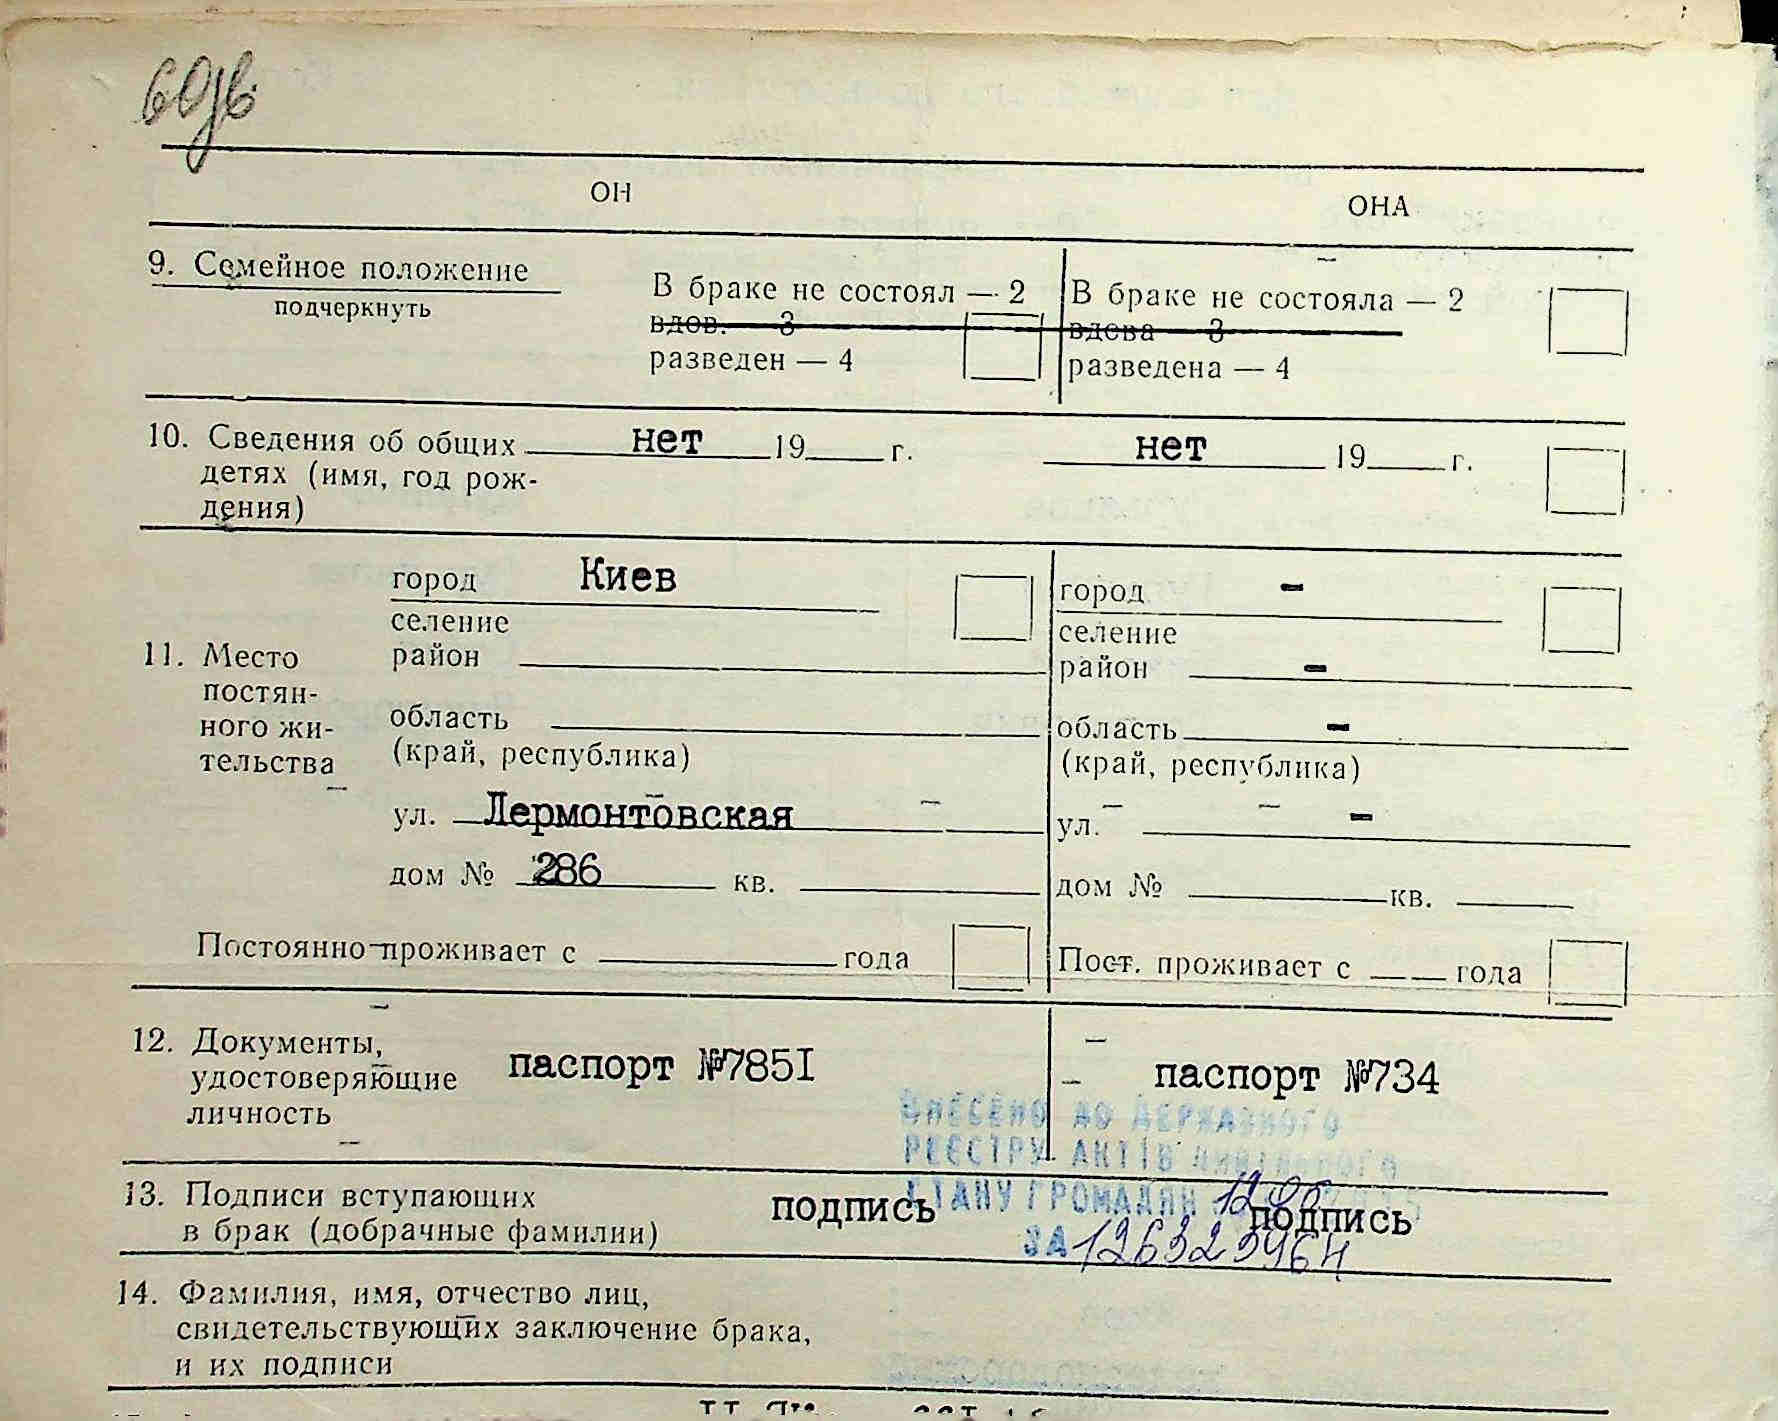 601в.
ОН ОНА
9. Семейное положение
подчеркнуть
В браке не состоял — 2 В браке не состояла — 2
вдов. — 3 вдова — 3
разведен — 4 разведена — 4
10. Сведения об общих нет 19 г. нет 19 г.
детях (имя, год рож-
дения)
город Киев город -
селение селение
11. Место район район -
постян-
ного жи- область область -
тельства (край, республика) (край, республика)
ул. Лермонтовская ул. -
дом № 286 кв. дом № кв.
Постоянно проживает с года Пост. проживает с года
12. Документы, паспорт №785I паспорт №734
удостоверяющие
личность
ВНЕСЕНО ДО ДЕРЖАВНОГО
РЕЄСТРУ АКТІВ ЦИВІЛЬНОГО
СТАНУ ГРОМАДЯН
13. Подписи вступающих подпись подпись
в брак (добрачные фамилии)
ЗА
14. Фамилия, имя, отчество лиц,
свидетельствующих заключение брака,
и их подписи